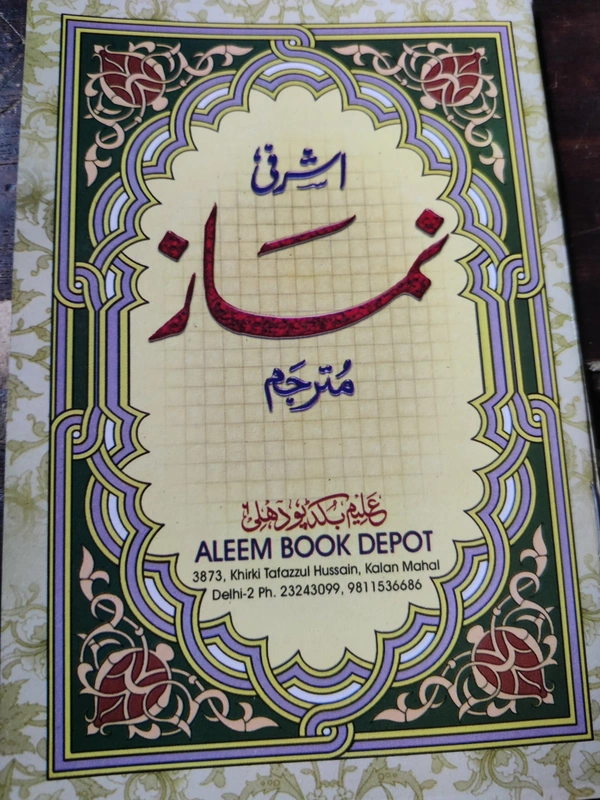 اشرفی
نماز
مُترجَم
عَلیم بکڈپو دهلی
ALEEM BOOK DEPOT
3873, Khirki Tafazzul Hussain, Kalan Mahal
Delhi-2 Ph. 23243099, 9811536686